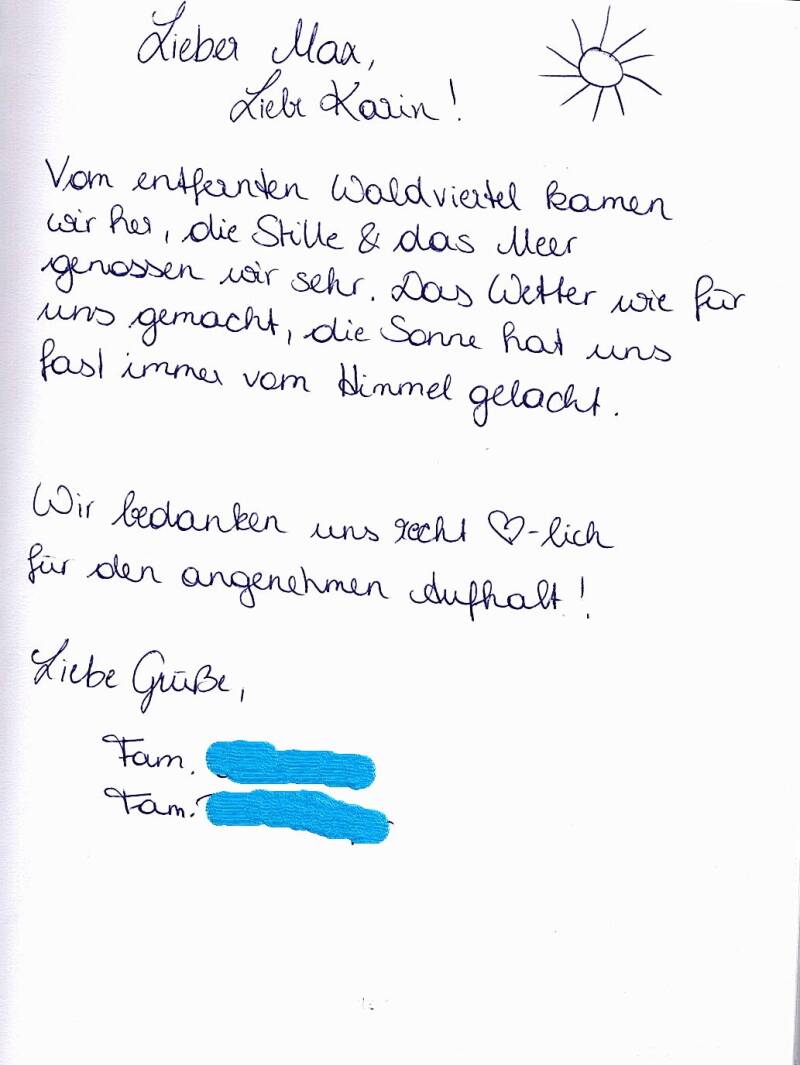 Lieber Max,
Liebe Karin!
Vom entfernten Waldviertel kamen
wir her, die Stille & das Meer
genossen wir sehr. Das Wetter wie für
uns gemacht, die Sonne hat uns
fast immer vom Himmel gelacht.
Wir bedanken uns recht ♡-lich
für den angenehmen Aufhalt!
Liebe Grüße,
Fam.
Fam.